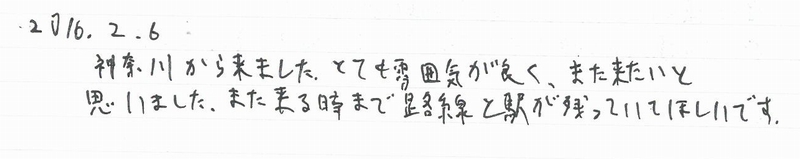 2016.2.6
神奈川から来ました。とても雰囲気が良く、また来たいと
思いました。また来る時まで路線と駅が残っていてほしいです。